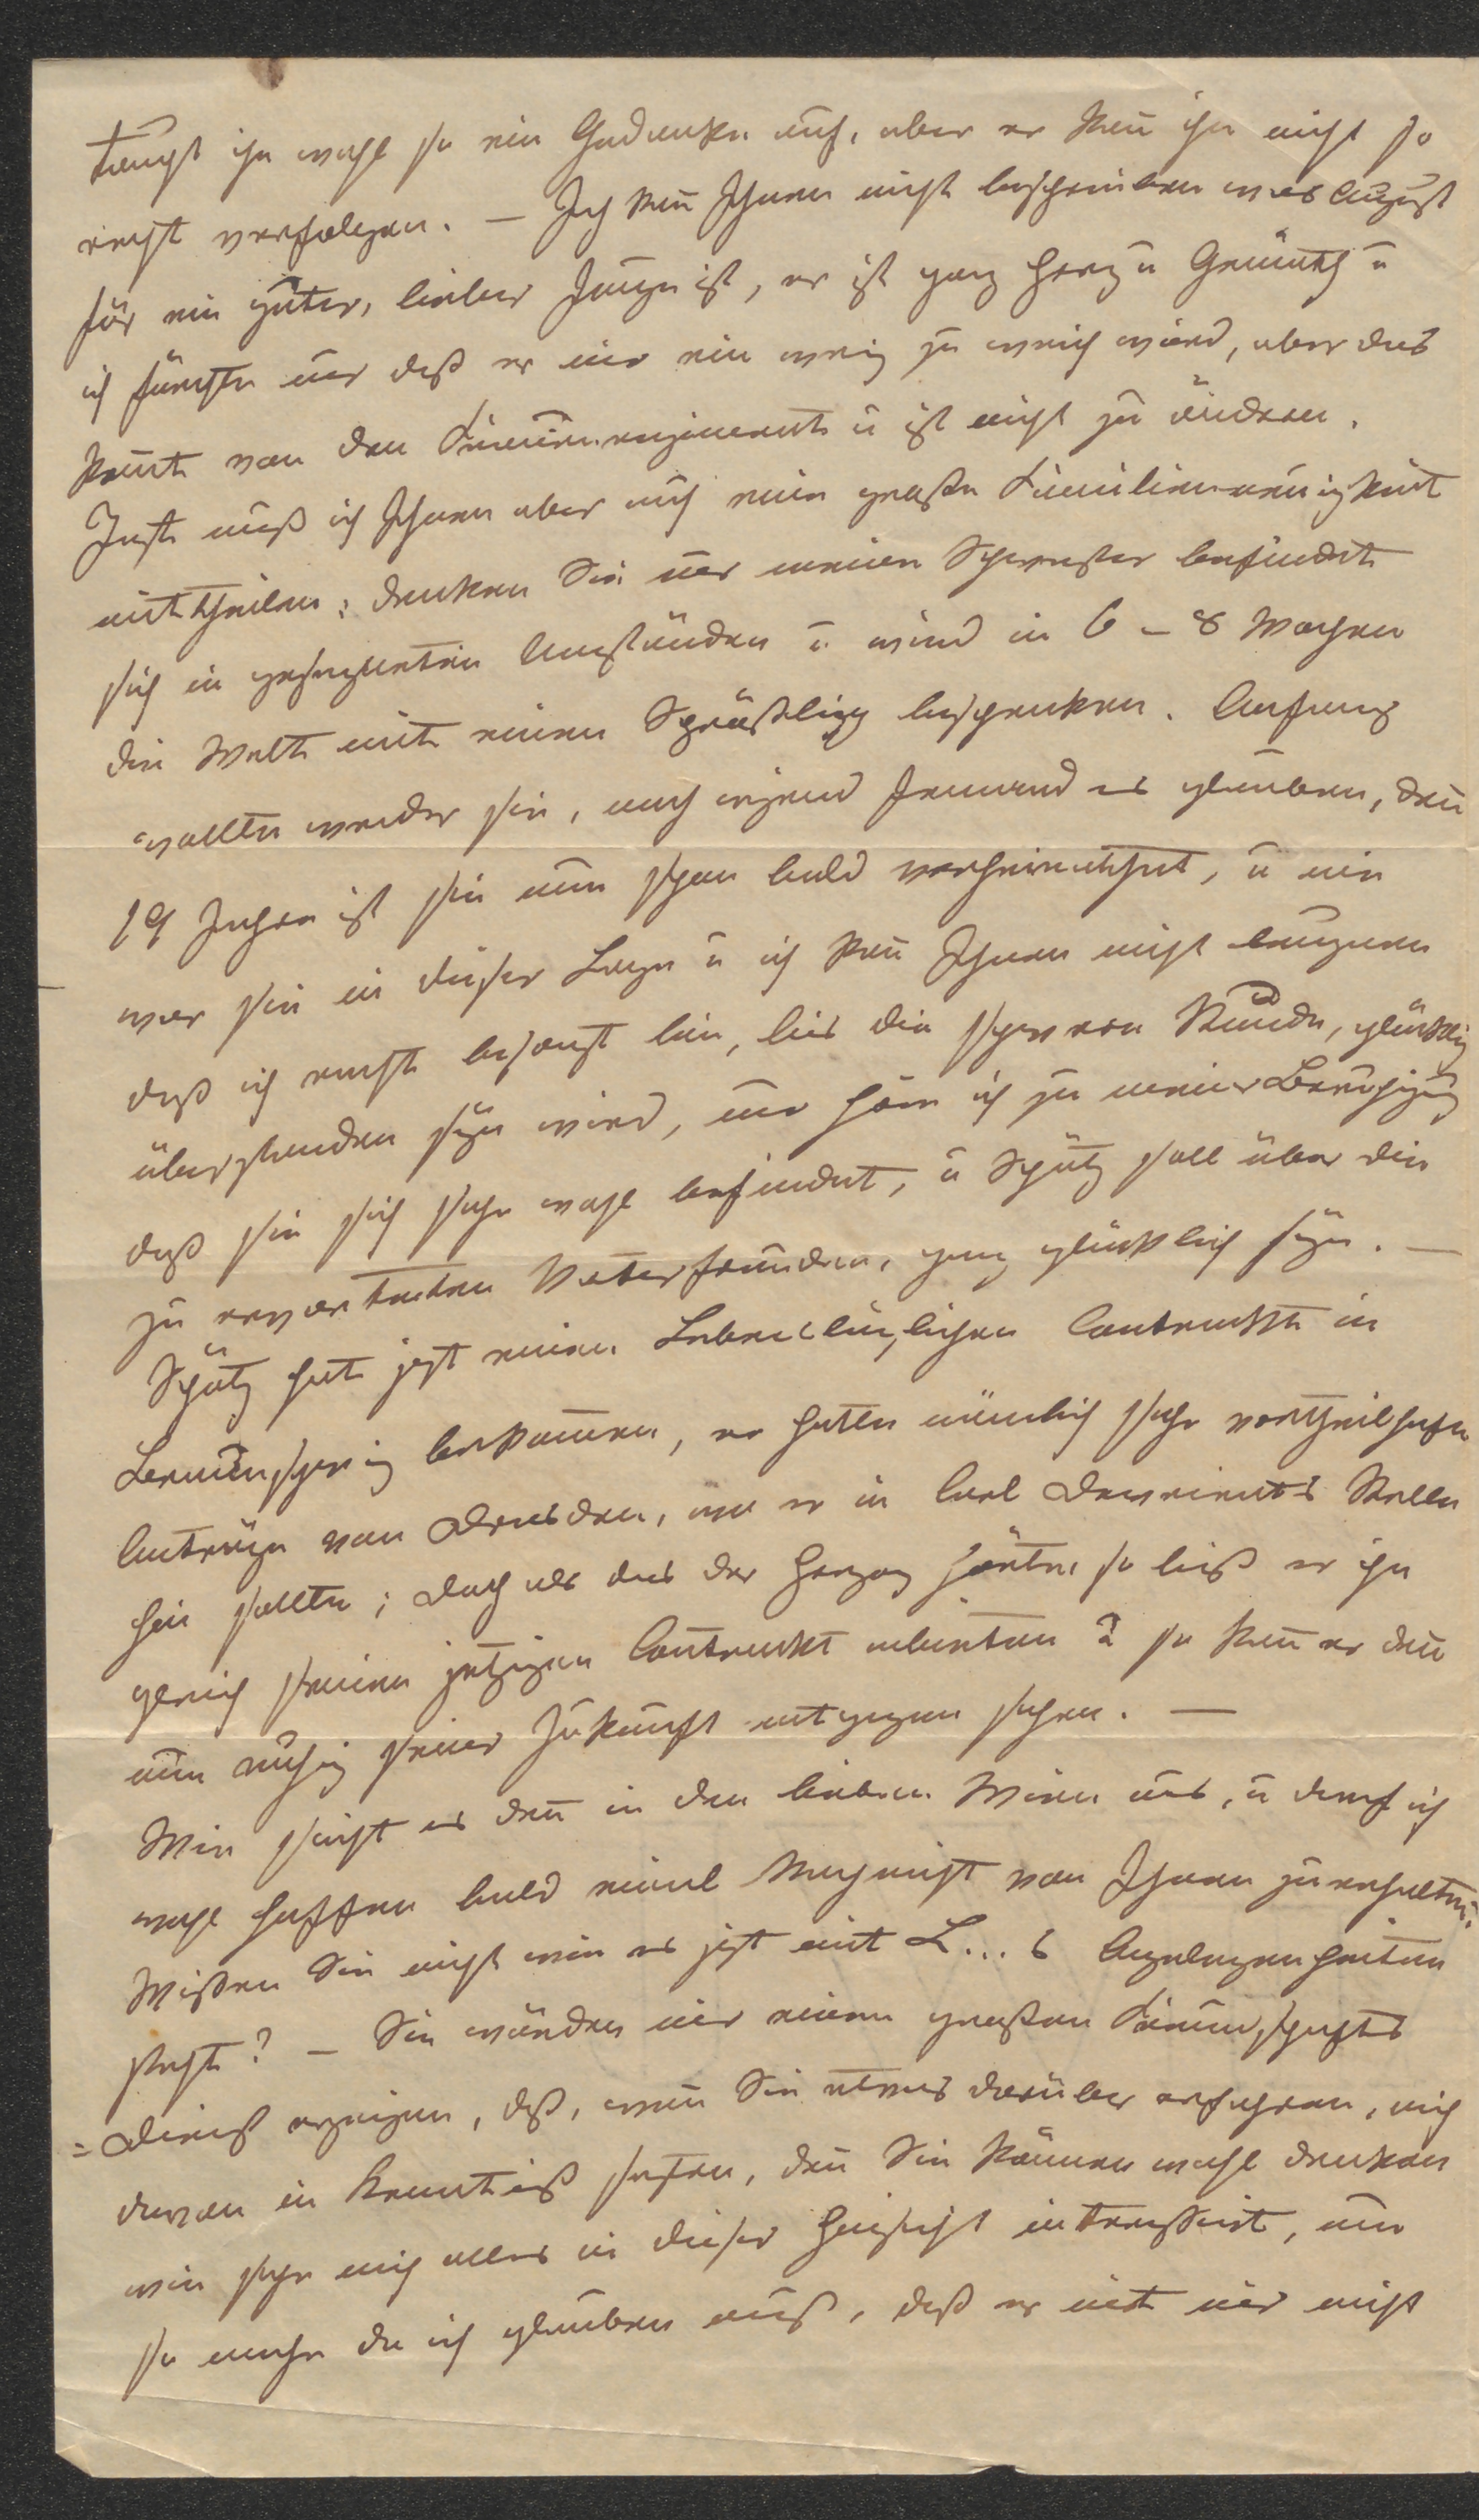 taucht ihn wohl so ein Gedanke auf, aber er kan̄ ihn nicht so
recht verfolgen. — Ich kan̄ Ihnen nicht beschreiben was August
für ein guter, lieber Junge ist, er ist ganz Herz u Gemüth u
ich fürchte nur daß er mir ein wenig zu weich wird, aber das
komt von den Frauenregimente u ist nicht zu ändern.
Jetzt muß ich Ihnen aber auch eine große Familienneuigkeit
mittheilen; denken Sie nur meine Schwester befindet
sich in gesegneten Umständen u. wird in 6 – 8 Wochen
die Welt mit einen Sprößling beschenken. Anfang
wollte weder sie, noch irgend Jemand es glauben, den̄
19 Jahre ist sie nun schon bald verheirathet, u nie
war sie in dieser Lage u ich kan̄ Ihnen nicht leugnen
daß ich recht besorgt bin, bis die schwere Stunde, glücklich
überstanden seyn wird, nur höre ich zu meiner Beruhigung
daß sie sich sehr wohl befindet, u Schütz soll über die
zu erwartenden Vaterfreuden, ganz glücklich seyn. —
Schütz hat jetzt einen Lebenslänglichen Contrackt in
Braunschweig bekommen, er hatte nämlich sehr vortheilhafte
Anträge von Dresden, wo er in Carl Devrients Stelle
hin sollte; doch als das der Herzog hörte, so ließ er ihn
gleich seinen jetzigen Contrackt anbieten u so kan̄ er den̄
nun ruhig seiner Zukunft entgegen sehen. —
Wie sieht es den̄ in den lieben Wien aus, u darf ich
wohl hoffen bald einmal Nachricht von Ihnen zu erhalten.
Wissen Sie nicht wie es jetzt mit L...s Angelegenheiten
steht? – Sie würden mir einen großen Freundschafts
=Dienst erzeigen, daß, wen̄ Sie etwas darüber erfahren, mich
davon in Kenntniß setzen, den̄ Sie können wohl denken
wie sehr mich alles in dieser Hinsicht interessirt, um
so mehr da ich glauben muß, daß er mit mir nicht